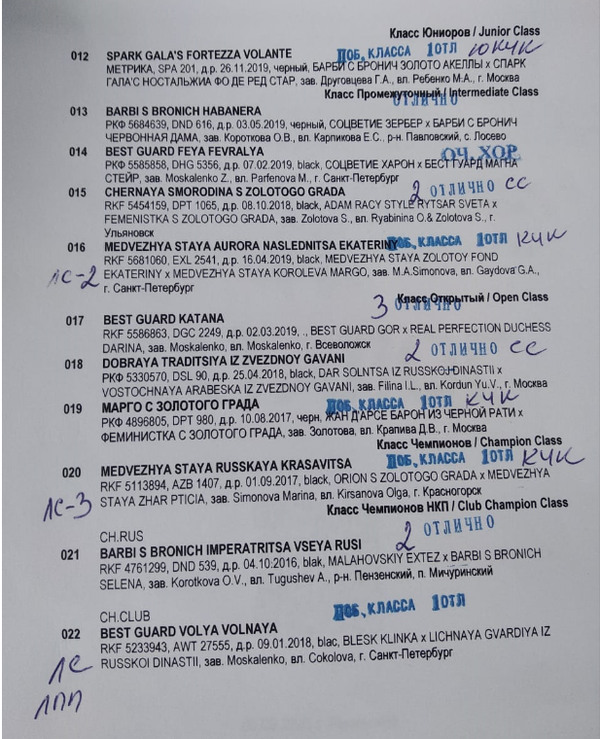 Класс Юниоров / Junior Class
012 SPARK GALA'S FORTEZZA VOLANTE ПОБ. КЛАССА 1 ОТЛ ЮКЧК
МЕТРИКА, SPA 201, д.р. 26.11.2019, черный, БАРБИ С БРОНИЧ ЗОЛОТО АКЕЛЛЫ x СПАРК
ГАЛА'С НОСТАЛЬЖИА ФО ДЕ РЕД СТАР, зав. Друговцева Г.А., вл. Ребенко М.А., г. Москва
Класс Промежуточный / Intermediate Class
013 BARBI S BRONICH HABANERA ОТЛИЧНО
РКФ 5684639, DND 616, д.р. 03.05.2019, черный, СОЦВЕТИЕ ЗЕРБЕР x БАРБИ С БРОНИЧ
ЧЕРВОННАЯ ДАМА, зав. Короткова О.В., вл. Карпикова Е.С., р-н. Павловский, с. Лосево
014 BEST GUARD FEYA FEVRALYA ОЧ. ХОР.
РКФ 5585858, DHG 5356, д.р. 07.02.2019, black, СОЦВЕТИЕ ХАРОН x БЕСТ ГУАРД МАГНА
СТЕЙР, зав. Moskalenko Z., вл. Parfenova M., г. Санкт-Петербург
015 CHERNAYA SMORODINA S ZOLOTOGO GRADA 2 ОТЛИЧНО СС
RKF 5454159, DPT 1065, д.р. 08.10.2018, black, ADAM RACY STYLE RYTSAR SVETA x
FEMENISTKA S ZOLOTOGO GRADA, зав. Zolotova S., вл. Ryabinina O.& Zolotova S., г.
Ульяновск
016 MEDVEZHYA STAYA AURORA NASLEDNITSA EKATERINY ПОБ. КЛАССА 1 ОТЛ КЧК
RKF 5681060, EXL 2541, д.р. 16.04.2019, black, MEDVEZHYA STAYA ZOLOTOY FOND
ЛС-2 EKATERINY x MEDVEZHYA STAYA KOROLEVA MARGO, зав. M.A.Simonova, вл. Gaydova G.A.,
г. Санкт-Петербург
Класс Открытый / Open Class
017 BEST GUARD KATANA 3 ОТЛИЧНО
RKF 5586863, DGC 2249, д.р. 02.03.2019, ., BEST GUARD GOR x REAL PERFECTION DUCHESS
DARINA, зав. Moskalenko, вл. Moskalenko, г. Всеволожск
018 DOBRAYA TRADITSIYA IZ ZVEZDNOY GAVANI 2 ОТЛИЧНО СС
РКФ 5330570, DSL 90, д.р. 25.04.2018, black, DAR SOLNTSA IZ RUSSKOI DINASTII x
VOSTOCHNAYA ARABESKA IZ ZVEZDNOY GAVANI, зав. Filina I.L., вл. Kordun Yu.V., г. Москва
019 МАРГО С ЗОЛОТОГО ГРАДА ПОБ. КЛАССА 1 ОТЛ КЧК
РКФ 4896805, DPT 980, д.р. 10.08.2017, черн, ЖАН Д'АРСЕ БАРОН ИЗ ЧЕРНОЙ РАТИ x
ФЕМИНИСТКА С ЗОЛОТОГО ГРАДА, зав. Золотова, вл. Крапива Д.В., г. Москва
Класс Чемпионов / Champion Class
020 MEDVEZHYA STAYA RUSSKAYA KRASAVITSA ПОБ. КЛАССА 1 ОТЛ КЧК
RKF 5113894, AZB 1407, д.р. 01.09.2017, black, ORION S ZOLOTOGO GRADA x MEDVEZHYA
ЛС-3 STAYA ZHAR PTICIA, зав. Simonova Marina, вл. Kirsanova Olga, г. Красногорск
Класс Чемпионов НКП / Club Champion Class
CH.RUS
021 BARBI S BRONICH IMPERATRITSA VSEYA RUSI 2 ОТЛИЧНО
RKF 4761299, DND 539, д.р. 04.10.2016, blak, MALAHOVSKIY EXTEZ x BARBI S BRONICH
SELENA, зав. Korotkova O.V., вл. Tugushev A., р-н. Пензенский, п. Мичуринский
CH.CLUB
022 BEST GUARD VOLYA VOLNAYA ПОБ. КЛАССА 1 ОТЛ
RKF 5233943, AWT 27555, д.р. 09.01.2018, blac, BLESK KLINKA x LICHNAYA GVARDIYA IZ
ЛС RUSSKOI DINASTII, зав. Moskalenko, вл. Cokolova, г. Санкт-Петербург
ЛПП